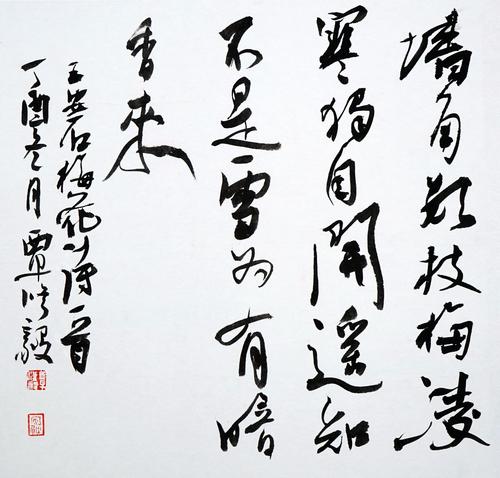 墙角数枝梅凌
寒独自開遥知
不是雪为有暗
香來
王安石梅花诗一首
丁酉冬月覃毅